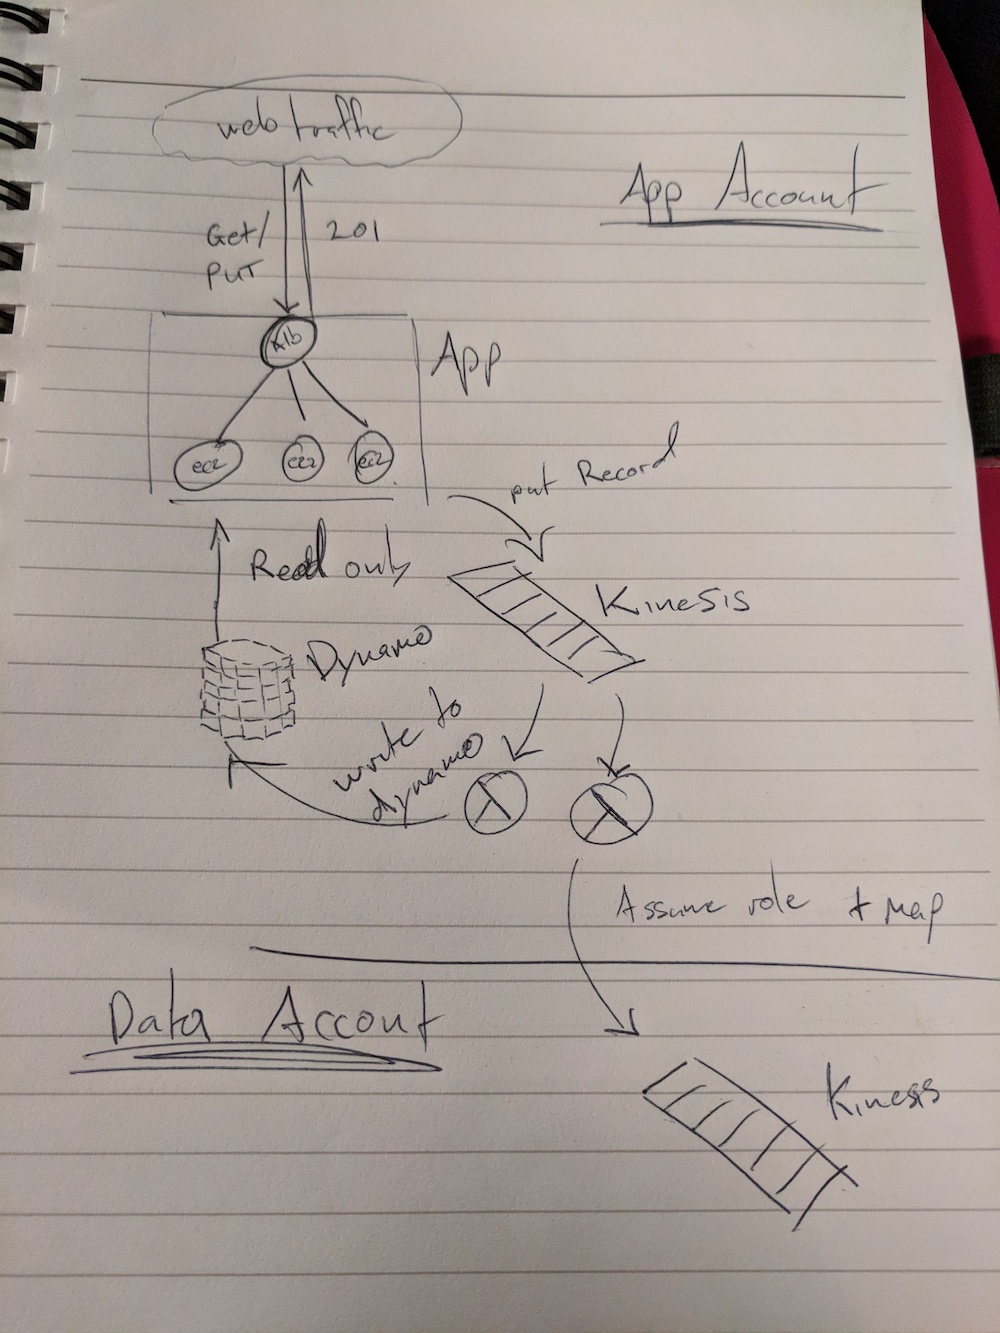 web traffic
App Account
Get/
PUT
201
Alb
App
ec2
ec2
ec2
put Record
Read only
Kinesis
Dynamo
write to
dynamo
Assume role + map
Data Accout
Kinesis